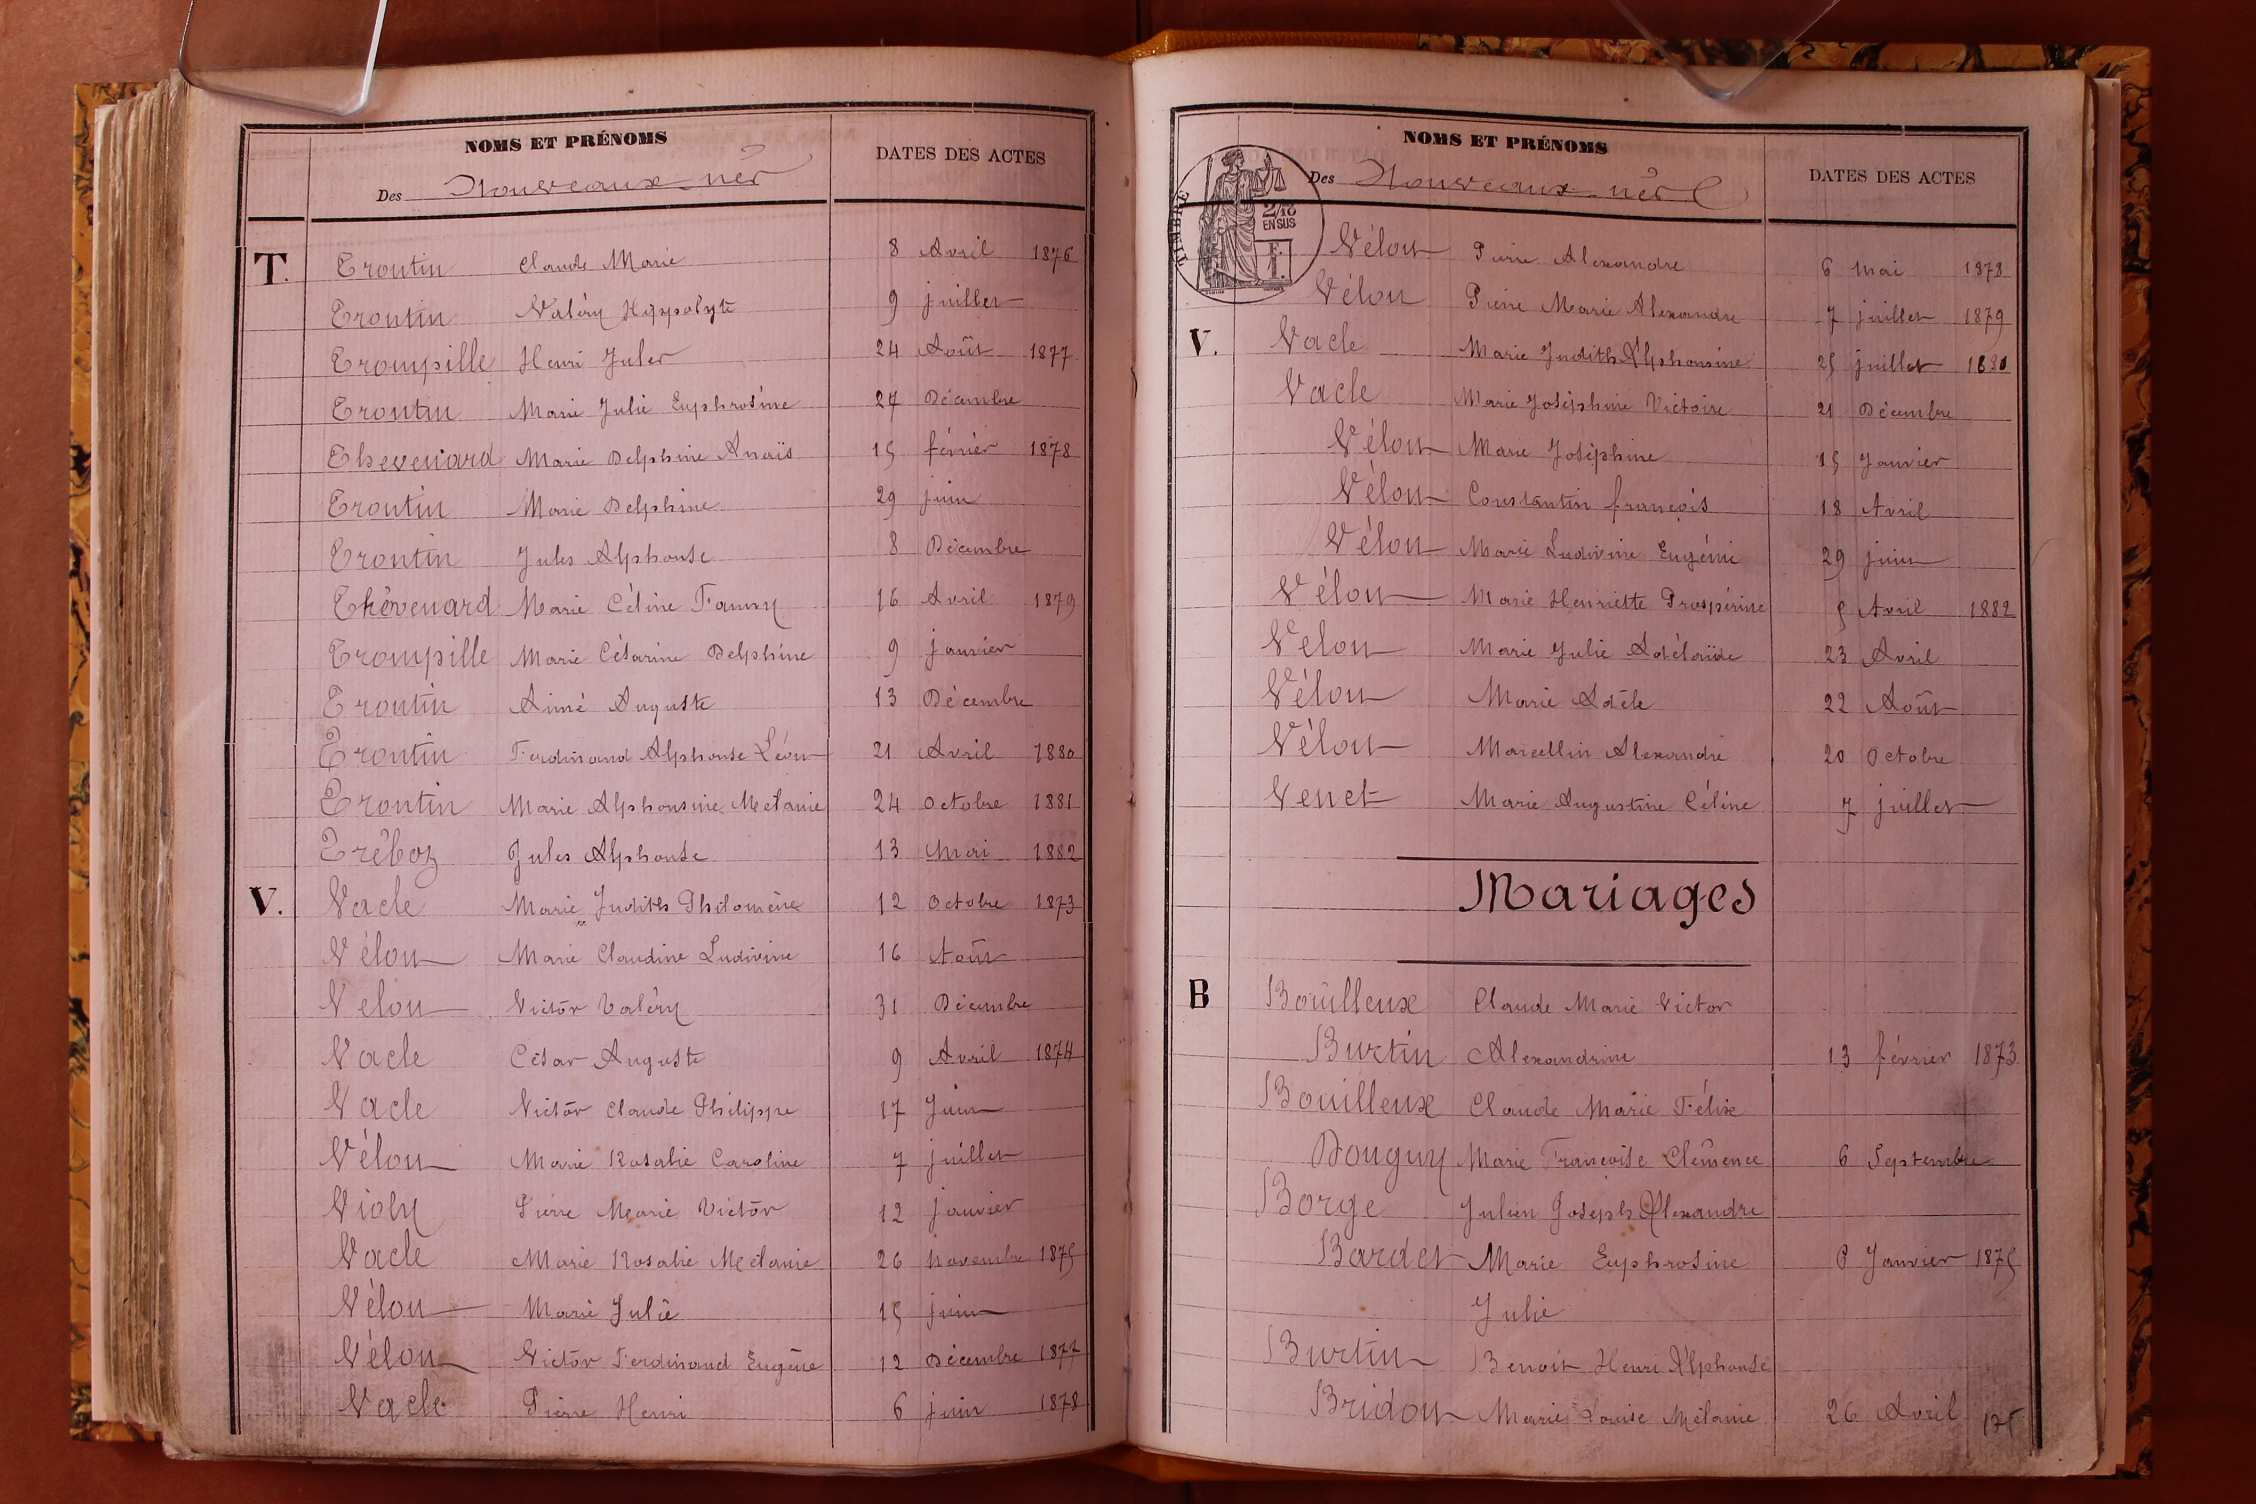 NOMS ET PRÉNOMS
DATES DES ACTES
Des Nouveaux nés
T. Trontin Claude Marie 8 Avril 1876
Trontin Valéry Hippolyte 9 juillet
Trompille Henri Jules 24 Août 1877
Trontin Marie Julie Euphrosine 27 Décembre
Thevenard Marie Delphine Anaïs 15 février 1878
Trontin Marie Delphine 29 juin
Trontin Jules Alphonse 8 Décembre
Thévenard Marie Céline Fanny 16 Avril 1879
Trompille Marie Césarine Delphine 9 janvier
Trontin Aimé Auguste 13 Décembre
Trontin Ferdinand Alphonse Léon 21 Avril 1880
Trontin Marie Alphonsine Mélanie 24 Octobre 1881
Tréboz Jules Alphonse 13 Mai 1882
V. Vacle Marie Judith Philomène 12 Octobre 1873
Vélon Marie Claudine Ludivine 16 Août
Velon Victor Valéry 31 Décembre
Vacle César Auguste 9 Avril 1874
Vacle Victor Claude Philippe 17 Juin
Vélon Marie Rosalie Caroline 7 juillet
Violy Pierre Marie Victor 12 janvier
Vacle Marie Rosalie Mélanie 26 novembre 1875
Vélon Marie Julie 15 juin
Vélon Victor Ferdinand Eugène 12 Décembre 1877
Vacle Pierre Henri 6 juin 1878
NOMS ET PRÉNOMS
DATES DES ACTES
Des Nouveaux nés
TIMBRE
2/10
EN SUS
Vélon Pierre Alexandre 6 mai 1878
Vélon Pierre Marie Alexandre 7 juillet 1879
V. Vacle Marie Judith Alphonsine 25 juillet 1880
Vacle Marie Joséphine Victoire 21 Décembre
Vélon Marie Joséphine 15 Janvier
Vélon Constantin françois 18 Avril
Vélon Marie Ludivine Eugénie 29 juin
Vélon Marie Henriette Prospérine 5 Avril 1882
Velon Marie Julie Adélaïde 23 Avril
Vélon Marie Adèle 22 Août
Vélon Marcellin Alexandre 20 Octobre
Venet Marie Augustine Céline 7 juillet
Mariages
B Bouilleux Claude Marie Victor
Burtin Alexandrine 13 février 1873
Bouilleux Claude Marie Félix
Douguy Marie Françoise Clémence 6 Septembre
Borge Julien Joseph Alexandre
Bardet Marie Euphrosine 8 Janvier 1875
Julie
Burtin Benoit Henri Alphonse
Bridon Marie Louise Mélanie 26 Avril